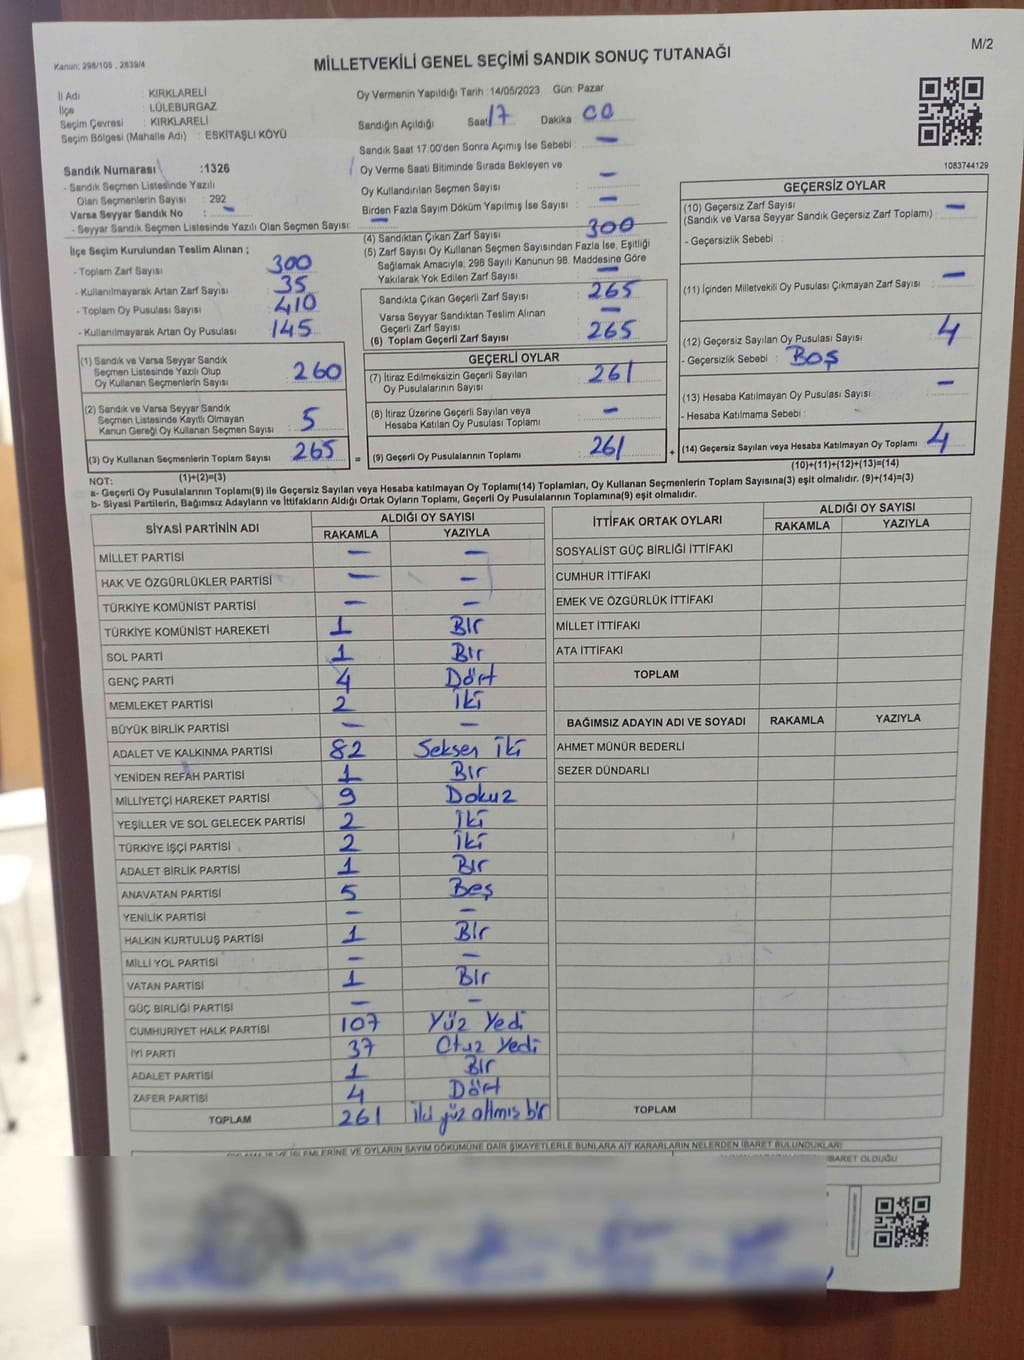 M/2
Kanun: 298/105 , 2839/4
MİLLETVEKİLİ GENEL SEÇİMİ SANDIK SONUÇ TUTANAĞI
İl Adı : KIRKLARELİ
İlçe : LÜLEBURGAZ
Seçim Çevresi : KIRKLARELİ
Seçim Bölgesi (Mahalle Adı) : ESKİTAŞLI KÖYÜ
Oy Vermenin Yapıldığı Tarih :14/05/2023 Gün: Pazar
Sandığın Açıldığı Saat 17 Dakika : 00
Sandık Saat 17:00'den Sonra Açımış İse Sebebi : —
Oy Verme Saati Bitiminde Sırada Bekleyen ve
Oy Kullandırılan Seçmen Sayısı : —
Birden Fazla Sayım Döküm Yapılmış İse Sayısı : —
1083744129
Sandık Numarası :1326
- Sandık Seçmen Listesinde Yazılı
Olan Seçmenlerin Sayısı : 292
Varsa Seyyar Sandık No : —
- Seyyar Sandık Seçmen Listesinde Yazılı Olan Seçmen Sayısı: —
İlçe Seçim Kurulundan Teslim Alınan ;
- Toplam Zarf Sayısı : 300
- Kullanılmayarak Artan Zarf Sayısı : 35
- Toplam Oy Pusulası Sayısı : 410
- Kullanılmayarak Artan Oy Pusulası : 145
(1) Sandık ve Varsa Seyyar Sandık
Seçmen Listesinde Yazılı Olup
Oy Kullanan Seçmenlerin Sayısı : 260
(2) Sandık ve Varsa Seyyar Sandık
Seçmen Listesinde Kayıtlı Olmayan
Kanun Gereği Oy Kullanan Seçmen Sayısı : 5
(3) Oy Kullanan Seçmenlerin Toplam Sayısı : 265
(1)+(2)=(3)
(4) Sandıktan Çıkan Zarf Sayısı : 300
(5) Zarf Sayısı Oy Kullanan Seçmen Sayısından Fazla İse, Eşitliği
Sağlamak Amacıyla, 298 Sayılı Kanunun 98. Maddesine Göre
Yakılarak Yok Edilen Zarf Sayısı : —
Sandıkta Çıkan Geçerli Zarf Sayısı : 265
Varsa Seyyar Sandıktan Teslim Alınan
Geçerli Zarf Sayısı : —
(6) Toplam Geçerli Zarf Sayısı : 265
GEÇERLİ OYLAR
(7) İtiraz Edilmeksizin Geçerli Sayılan
Oy Pusulalarının Sayısı : 261
(8) İtiraz Üzerine Geçerli Sayılan veya
Hesaba Katılan Oy Pusulası Toplamı : —
= (9) Geçerli Oy Pusulalarının Toplamı : 261 +
GEÇERSİZ OYLAR
(10) Geçersiz Zarf Sayısı
(Sandık ve Varsa Seyyar Sandık Geçersiz Zarf Toplamı) : —
- Geçersizlik Sebebi :
(11) İçinden Milletvekili Oy Pusulası Çıkmayan Zarf Sayısı : —
(12) Geçersiz Sayılan Oy Pusulası Sayısı : 4
- Geçersizlik Sebebi : BOŞ
(13) Hesaba Katılmayan Oy Pusulası Sayısı : —
- Hesaba Katılmama Sebebi :
(14) Geçersiz Sayılan veya Hesaba Katılmayan Oy Toplamı : 4
(10)+(11)+(12)+(13)=(14)
NOT:
a- Geçerli Oy Pusulalarının Toplamı(9) ile Geçersiz Sayılan veya Hesaba katılmayan Oy Toplamı(14) Toplamları, Oy Kullanan Seçmenlerin Toplam Sayısına(3) eşit olmalıdır. (9)+(14)=(3)
b- Siyasi Partilerin, Bağımsız Adayların ve İttifakların Aldığı Ortak Oyların Toplamı, Geçerli Oy Pusulalarının Toplamına(9) eşit olmalıdır.
SİYASİ PARTİNİN ADI ALDIĞI OY SAYISI
RAKAMLA YAZIYLA
MİLLET PARTİSİ — —
HAK VE ÖZGÜRLÜKLER PARTİSİ — —
TÜRKİYE KOMÜNİST PARTİSİ — —
TÜRKİYE KOMÜNİST HAREKETİ 1 Bir
SOL PARTİ 1 Bir
GENÇ PARTİ 4 Dört
MEMLEKET PARTİSİ 2 İki
BÜYÜK BİRLİK PARTİSİ — —
ADALET VE KALKINMA PARTİSİ 82 Seksen İki
YENİDEN REFAH PARTİSİ 1 Bir
MİLLİYETÇİ HAREKET PARTİSİ 9 Dokuz
YEŞİLLER VE SOL GELECEK PARTİSİ 2 İki
TÜRKİYE İŞÇİ PARTİSİ 2 İki
ADALET BİRLİK PARTİSİ 1 Bir
ANAVATAN PARTİSİ 5 Beş
YENİLİK PARTİSİ — —
HALKIN KURTULUŞ PARTİSİ 1 Bir
MİLLİ YOL PARTİSİ — —
VATAN PARTİSİ 1 Bir
GÜÇ BİRLİĞİ PARTİSİ — —
CUMHURİYET HALK PARTİSİ 107 Yüz Yedi
İYİ PARTİ 37 Otuz Yedi
ADALET PARTİSİ 1 Bir
ZAFER PARTİSİ 4 Dört
TOPLAM 261 İki yüz altmış bir
İTTİFAK ORTAK OYLARI ALDIĞI OY SAYISI
RAKAMLA YAZIYLA
SOSYALİST GÜÇ BİRLİĞİ İTTİFAKI
CUMHUR İTTİFAKI
EMEK VE ÖZGÜRLÜK İTTİFAKI
MİLLET İTTİFAKI
ATA İTTİFAKI
TOPLAM
BAĞIMSIZ ADAYIN ADI VE SOYADI RAKAMLA YAZIYLA
AHMET MÜNÜR BEDERLİ
SEZER DÜNDARLI
TOPLAM
İŞLEMLERİNE VE OYLARIN SAYIM DÖKÜMÜNE DAİR ŞİKAYETLERLE BUNLARA AİT KARARLARIN NELERDEN İBARET BULUNDUKLARI
İBARET OLDUĞU